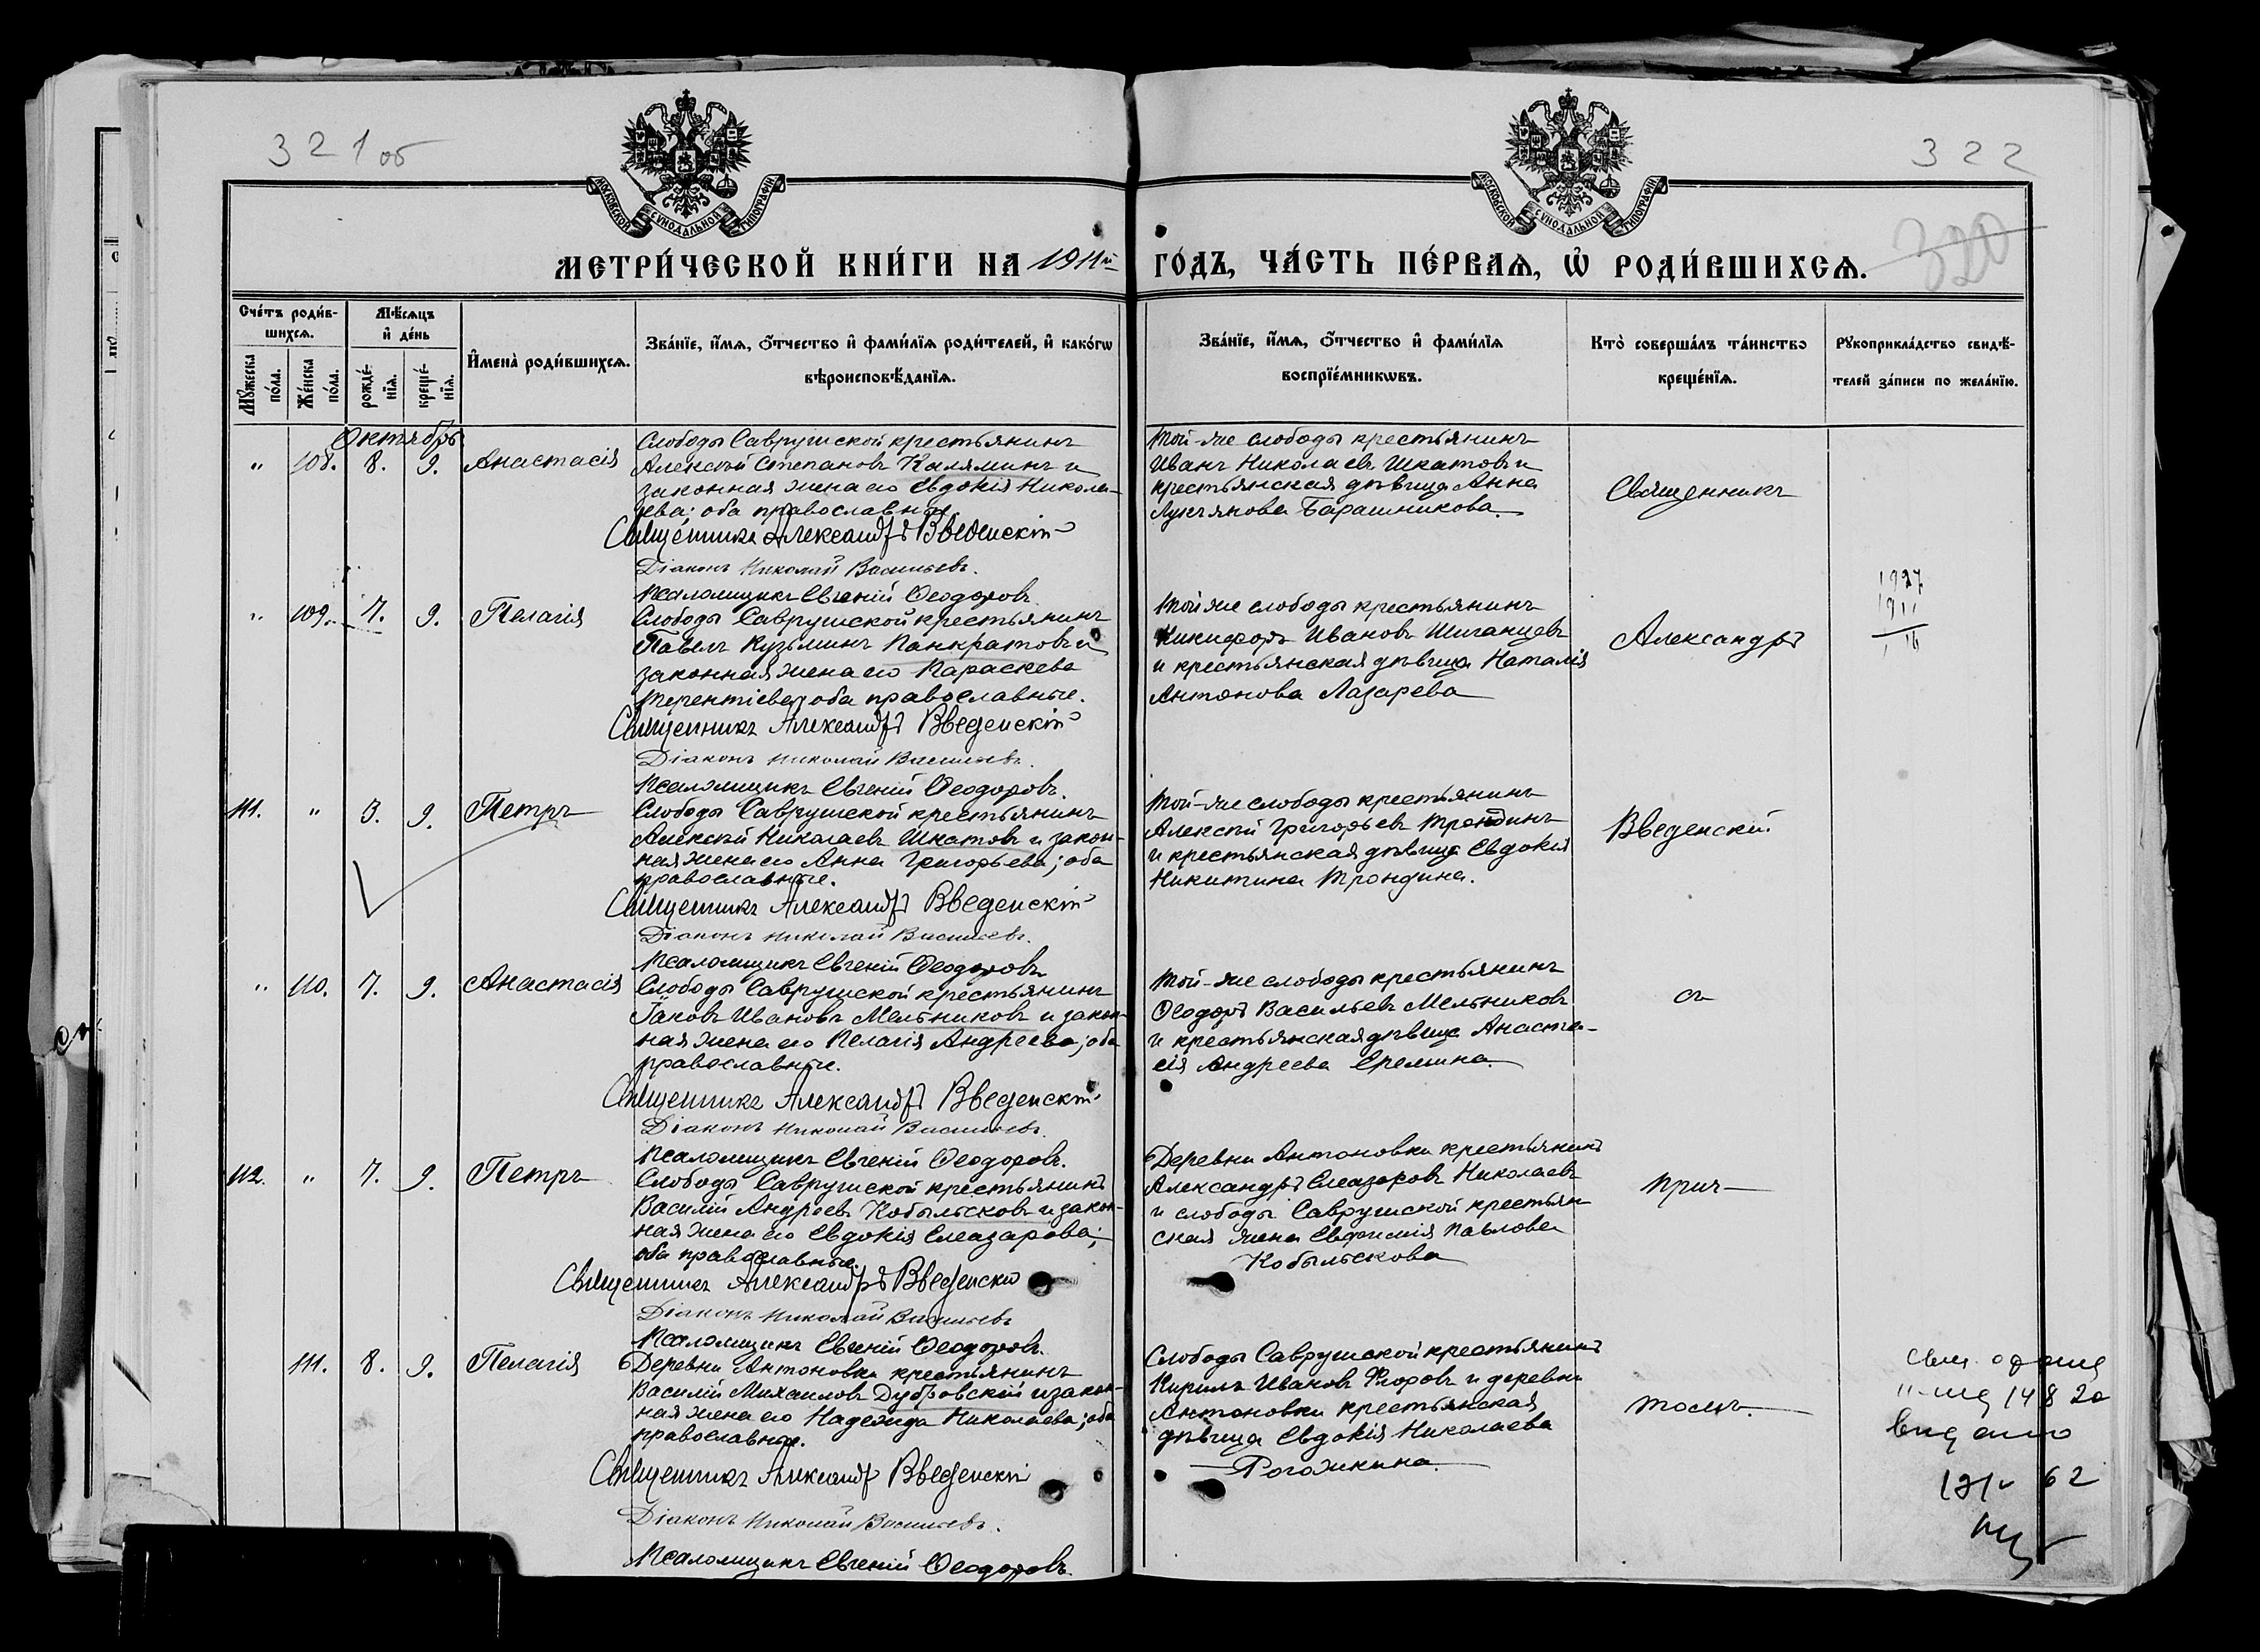 321 об
322
320
МОСКОВСКОЙ СѴНОДАЛЬНОЙ ТИПОГРАФІИ
МОСКОВСКОЙ СѴНОДАЛЬНОЙ ТИПОГРАФІИ
МЕТРИ́ЧЕСКОЙ КНИ́ГИ НА 1911й ГО́ДЪ, ЧА́СТЬ ПЕ́РВАѦ, Ѡ҆ РОДИ́ВШИХСѦ.
Сче́тъ роди́в-
шихсѧ.
Мꙋ́жеска по́ла.
Же́нска по́ла.
Мѣ́сѧцъ
и҆ де́нь
рожде́-
нїѧ.
креще́-
нїѧ.
И҆мена̀ роди́вшихсѧ.
Зва́нїе, и҆́мѧ, ѻ҆́тчество и҆ фами́лїѧ роди́телей, и҆ како́гѡ
вѣроисповѣ́данїѧ.
Зва́нїе, и҆́мѧ, ѻ҆́тчество и҆ фами́лїѧ
воспрїе́мникѡвъ.
Кто̀ соверша́лъ та́инство
креще́нїѧ.
Рꙋкоприкла́дство свидѣ́-
телей за́писи по жела́нїю.
Октябрь
" 108. 8. 9. Анастасія
Слободы Саврушской крестьянинъ
Алексѣй Степановъ Калякинъ и
законная жена его Евдокія Никола-
ева; оба православные.
Священникъ Александръ Введенскій
Діаконъ Николай Васильевъ.
Псаломщикъ Евгеній Ѳеодоровъ
Той-же слободы крестьянинъ
Иванъ Николаевъ Шкатовъ и
крестьянская дѣвица Анна
Лукьянова Барашникова.
Священникъ
" 109. 7. 9. Пелагія
Слободы Саврушской крестьянинъ
Павелъ Кузьминъ Панкратовъ и
законная жена его Параскева
Терентіева; оба православные.
Священникъ Александръ Введенскій
Діаконъ Николай Васильевъ.
Псаломщикъ Евгеній Ѳеодоровъ.
Той же слободы крестьянинъ
Никифоръ Ивановъ Шиганцевъ
и крестьянская дѣвица Наталія
Антонова Лазарева
Александръ
1927
1911
16
111. " 3. 9. Петръ
Слободы Саврушской крестьянинъ
Алексѣй Николаевъ Шкатовъ и закон-
ная жена его Анна Григорьева; оба
православные.
Священникъ Александръ Введенскій
Діаконъ Николай Васильевъ.
Псаломщикъ Евгеній Ѳеодоровъ
Той-же слободы крестьянинъ
Алексѣй Григорьевъ Трондинъ
и крестьянская дѣвица Евдокія
Никитина Трондина.
Введенскій
" 110. 7. 9. Анастасія
Слободы Саврушской крестьянинъ
Іаковъ Ивановъ Мельниковъ и закон-
ная жена его Пелагія Андреева; оба
православные.
Священникъ Александръ Введенскій
Діаконъ Николай Васильевъ.
Псаломщикъ Евгеній Ѳеодоровъ.
Той-же слободы крестьянинъ
Ѳеодоръ Васильевъ Мельниковъ
и крестьянская дѣвица Анаста-
сія Андреева Еремина.
съ
112. " 7. 9. Петръ
Слободы Саврушской крестьянинъ
Василій Андреевъ Кобыльсковъ и закон-
ная жена его Евдокія Елеазарова;
оба православные.
Священникъ Александръ Введенскій
Діаконъ Николай Васильевъ
Псаломщикъ Евгеній Ѳеодоровъ.
Деревни Антоновки крестьянинъ
Александръ Елеазаровъ Николаевъ
и слободы Саврушской крестьян-
ская жена Евфимія Павлова
Кобыльскова
прич-
111. 8. 9. Пелагія
Деревни Антоновки крестьянинъ
Василій Михаиловъ Дубровскій и закон-
ная жена его Надежда Николаева; оба
православные.
Священникъ Александръ Введенскій
Діаконъ Николай Васильевъ.
Псаломщикъ Евгеній Ѳеодоровъ.
Слободы Саврушской крестьянинъ
Кирилъ Ивановъ Флоровъ и деревни
Антоновки крестьянская
дѣвица Евдокія Николаева
Рогожкина.
томъ.